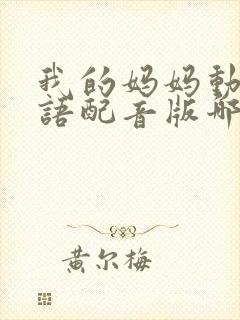 我的妈妈動
語配音版哪
黄尔梅